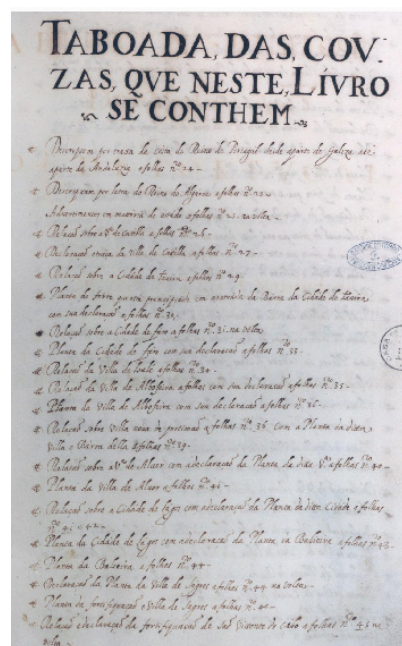 TABOADA, DAS, COV.
ZAS, QVE NESTE, LIVRO
SE CONTHEM
Descripçam por costa do Reino de Portugal desde aparte de Galiza ate
aparte de Andaluzia afolhas nº 24
Descripçam por letra do Reino do Algarve afolhas nº
Advertencias em materia de afolhas nº na volta
Relaçaõ sobre a Vª de Castro a folhas nº 26
Declaraçaõ da Villa de Cacella afolhas nº 27
Relaçaõ sobre a Cidade de tavira afolhas nº 29
Planta do forte que esta principiado em da Barra da Cidade de tavira
com sua declaraçaõ afolhas nº 30
Relaçaõ sobre a Cidade de faro afolhas nº 31 na volta
Planta da Cidade de faro com sua declaraçaõ afolhas nº 33
Relaçaõ da Villa de Loule afolhas nº 34
Relaçaõ da Villa de Albofeira afolhas com sua declaraçaõ afolhas nº 35
Planta da Villa de Albofeira com sua declaraçaõ afolhas nº 36
Relaçaõ sobre Villa nova de portimaõ afolhas nº 36 com a Planta da ditta
Villa e Barra della afolhas nº 39
Relaçaõ sobre a Vª de Alvor com adeclaraçaõ da Planta da ditta Vª afolhas nº 40
Planta da Villa de Alvor afolhas nº 41
Relaçaõ sobre a Cidade de Lagos com adeclaraçaõ da Planta da ditta Cidade afolhas
nº 41 e 42
Planta da Cidade de Lagos com adeclaraçaõ da Planta da Baleeira afolhas nº 43
Planta da Baleeira afolhas nº 44
Declaraçaõ da Planta da Villa de Sagres afolhas nº 44 na volta
Planta da fortifiquaçaõ e Villa de Sagres afolhas nº
Relaçaõ e declaraçaõ da fortifiquaçaõ de Saõ Vicente do cabo afolhas nº 45 na
volta